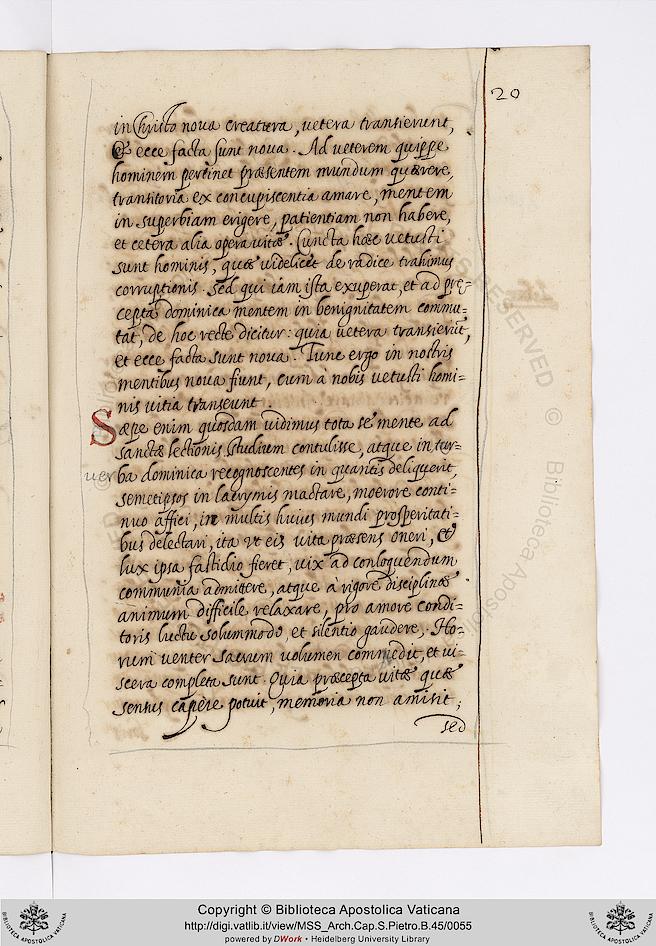 20
in Christo nova creatura, vetera transierunt,
& ecce facta sunt nova. Ad veterem quippe
hominem pertinet præsentem mundum quærere,
transitoria ex concupiscentia amare, mentem
in superbiam erigere, patientiam non habere,
et cetera alia opera vitæ. Cuncta hæc vetusti
sunt hominis, quæ videlicet de radice trahimus
corruptionis. Sed qui iam ista exuperat, et ad præ=
cepta dominica mentem in benignitatem commu=
tat, de hoc recte dicitur: quia vetera transierũt,
et ecce facta sunt nova. Tunc ergo in nostris
mentibus nova fiunt, cum à nobis vetusti homi=
nis vitia transeunt.
Sæpe enim quosdam vidimus tota se mente ad
sanctæ lectionis studium contulisse, atque inter
verba dominica recognoscentes in quantis deliquerit,
semetipsos in lacrymis mactare, moerore conti=
nuo affici, in multis huius mundi prosperitati=
bus delectari, ita vt eis vita præsens oneri, et
lux ipsa fastidio fieret, vix ad conloquendum
communia admittere, atque à rigore disciplinæ
animum difficile relaxare, pro amore condi=
toris luctu solummodo, et silentio gaudere. Ho=
rum venter sacrum volumen commedit, et vi=
scera completa sunt. Quia præcepta vitæ quæ
sensus capere potuit, memoria non amisit;
sed
Copyright © Biblioteca Apostolica Vaticana
http://digi.vatlib.it/view/MSS_Arch.Cap.S.Pietro.B.45/0055
powered by DWork • Heidelberg University Library